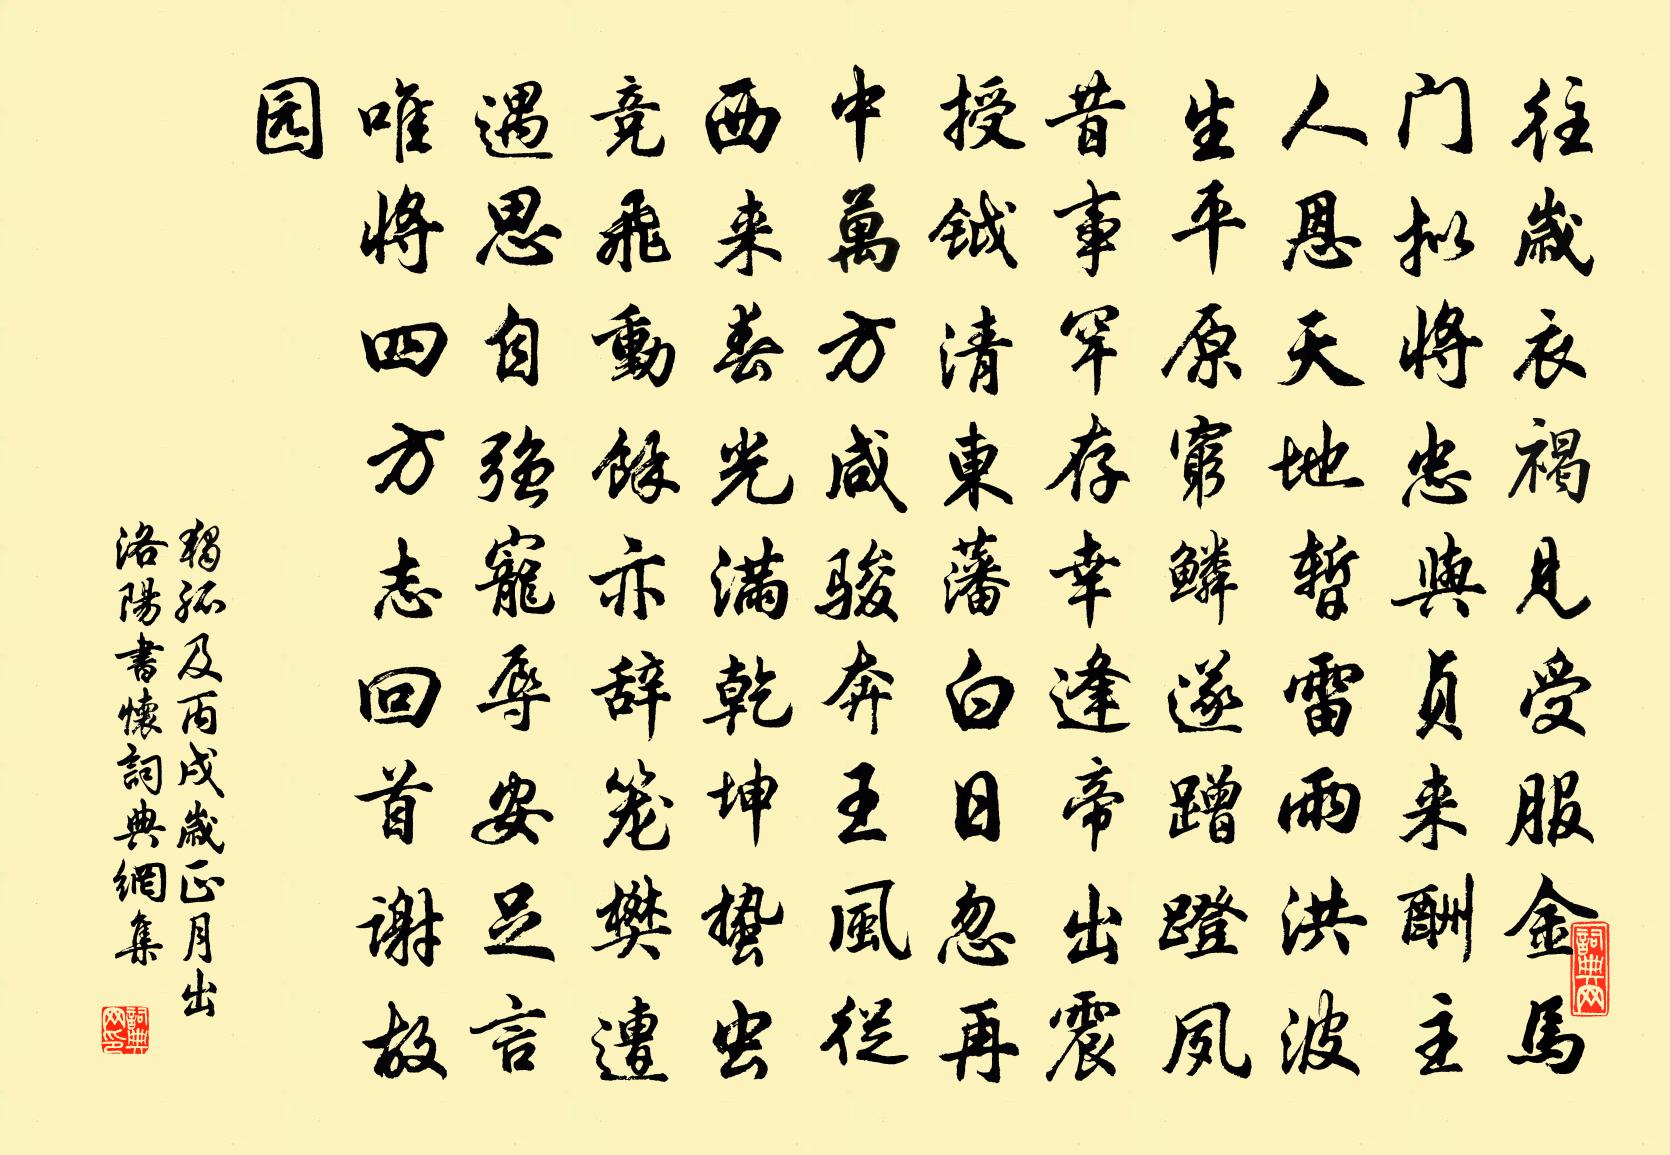 往歲衣褐見受服金馬
门拟將忠與貞来酬主
人恩天地暫雷雨洪波
生平原窮鱗遂蹭蹬夙
昔事罕存幸逢帝出震
授鉞清東藩白日忽再
中萬方咸骏奔王風從
西来春光满乾坤蛰虫
竞飛動餘亦辞笼樊遭
遇思自强寵辱安足言
唯將四方志回首谢故
园
獨孤及丙戌歲正月出
洛陽書懷詞典網集
詞典网
詞典网印